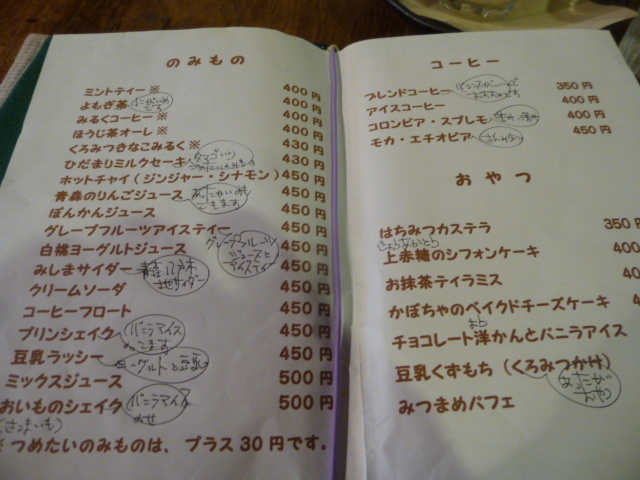 のみもの
ミントティー※ 400円
よもぎ茶 400円
みるくコーヒー※ 400円
ほうじ茶オーレ※ 400円
くろみつきなこみるく※ 430円
ひだまりミルクセーキ 430円
ホットチャイ(ジンジャー・シナモン) 450円
青森のりんごジュース 450円
ぽんかんジュース 450円
グレープフルーツアイスティー 450円
白桃ヨーグルトジュース 450円
グレープフルーツ
ジュースと
アイスティー
みしまサイダー 450円
青森 八戸
地サイダー
クリームソーダ 450円
コーヒーフロート 450円
プリンシェイク 450円
バニラアイス
豆乳ラッシー 450円
ヨーグルトと豆乳
ミックスジュース 500円
おいものシェイク 500円
バニラアイス
(さつまいも)
※つめたいのみものは、プラス30円です。
コーヒー
ブレンドコーヒー 350円
アイスコーヒー 400円
コロンビア・スプレモ 400円
モカ・エチオピア 450円
おやつ
はちみつカステラ 350円
上赤糖のシフォンケーキ 400
お抹茶ティラミス 400
かぼちゃのベイクドチーズケーキ 4
チョコレート洋かんとバニラアイス
豆乳くずもち(くろみつかけ)
みつまめパフェ